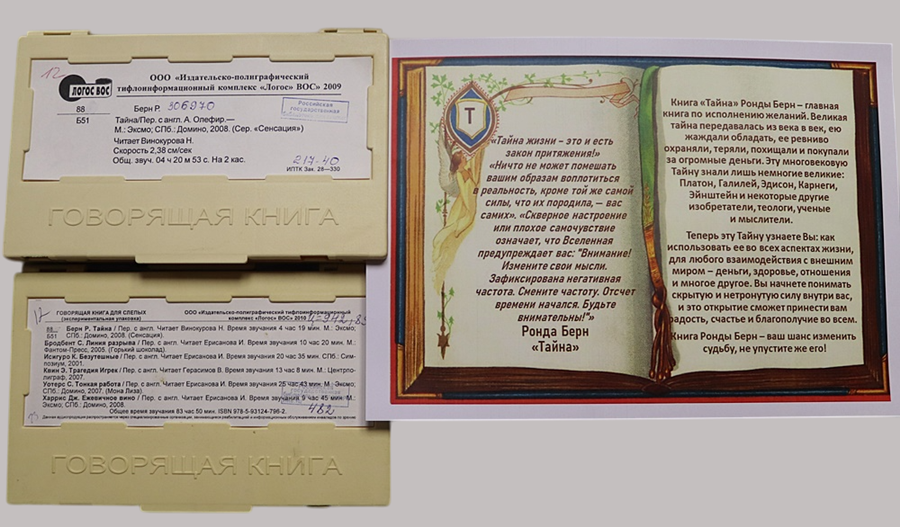 12
ЛОГОС ВОС
ООО «Издательско-полиграфический
тифлоинформационный комплекс «Логос» ВОС» 2009
88
Б51
Берн Р. 306970
Российская
государственная
Тайна/Пер. с англ. А. Олефир.—
М.: Эксмо; СПб.: Домино, 2008. (Сер. «Сенсация»)
Читает Винокурова Н.
Скорость 2,38 см/сек
Общ. звуч. 04 ч 20 м 53 с. На 2 кас.
217-40
ИПТК Зак. 28—330
ГОВОРЯЩАЯ КНИГА
ГОВОРЯЩАЯ КНИГА ДЛЯ СЛЕПЫХ
(экспериментальная упаковка)
ООО «Издательско-полиграфический тифлоинформационный
комплекс «Логос» ВОС» 2010
88
Б51
Берн Р. Тайна / Пер. с англ. Читает Винокурова Н. Время звучания 4 час 19 мин. М.: Эксмо;
СПб.: Домино, 2008. (Сенсация).
Бродбент С. Линия разрыва / Пер. с англ. Читает Ерисанова И. Время звучания 10 час 20 мин. М.:
Фантом-Пресс, 2005. (Горький шоколад).
Исигуро К. Безутешные / Пер. с англ. Читает Ерисанова И. Время звучания 20 час 35 мин. СПб.: Сим-
позиум, 2001.
Квин Э. Трагедия Игрек / Пер. с англ. Читает Герасимов В. Время звучания 13 час 8 мин. М.: Центрпо-
лиграф, 2007.
Уотерс С. Тонкая работа / Пер. с англ. Читает Ерисанова И. Время звучания 25 час 43 мин. М.: Эксмо;
СПб.: Домино, 2007. (Мона Лиза).
Харрис Дж. Ежевичное вино / Пер. с англ. Читает Ерисанова И. Время звучания 9 час 45 мин. М.:
Эксмо; СПб.: Домино, 2008.
Общее время звучания 83 час 50 мин. ISBN 978-5-93124-796-2.
482
ГОВОРЯЩАЯ КНИГА
Т
«Тайна жизни – это и есть
закон притяжения!»
«Ничто не может помешать
вашим образам воплотиться
в реальность, кроме той же самой
силы, что их породила, – вас
самих». «Скверное настроение
или плохое самочувствие
означает, что Вселенная
предупреждает вас: "Внимание!
Измените свои мысли.
Зафиксирована негативная
частота. Смените частоту. Отсчет
времени начался. Будьте
внимательны!"»
Ронда Берн
«Тайна»
Книга «Тайна» Ронды Берн – главная
книга по исполнению желаний. Великая
тайна передавалась из века в век, ею
жаждали обладать, ее ревниво
охраняли, теряли, похищали и покупали
за огромные деньги. Эту многовековую
Тайну знали лишь немногие великие:
Платон, Галилей, Эдисон, Карнеги,
Эйнштейн и некоторые другие
изобретатели, теологи, ученые
и мыслители.
Теперь эту Тайну узнаете Вы: как
использовать ее во всех аспектах жизни,
для любого взаимодействия с внешним
миром – деньги, здоровье, отношения
и многое другое. Вы начнете понимать
скрытую и нетронутую силу внутри вас,
и это открытие сможет принести вам
радость, счастье и благополучие во всем.
Книга Ронды Берн – ваш шанс изменить
судьбу, не упустите же его!